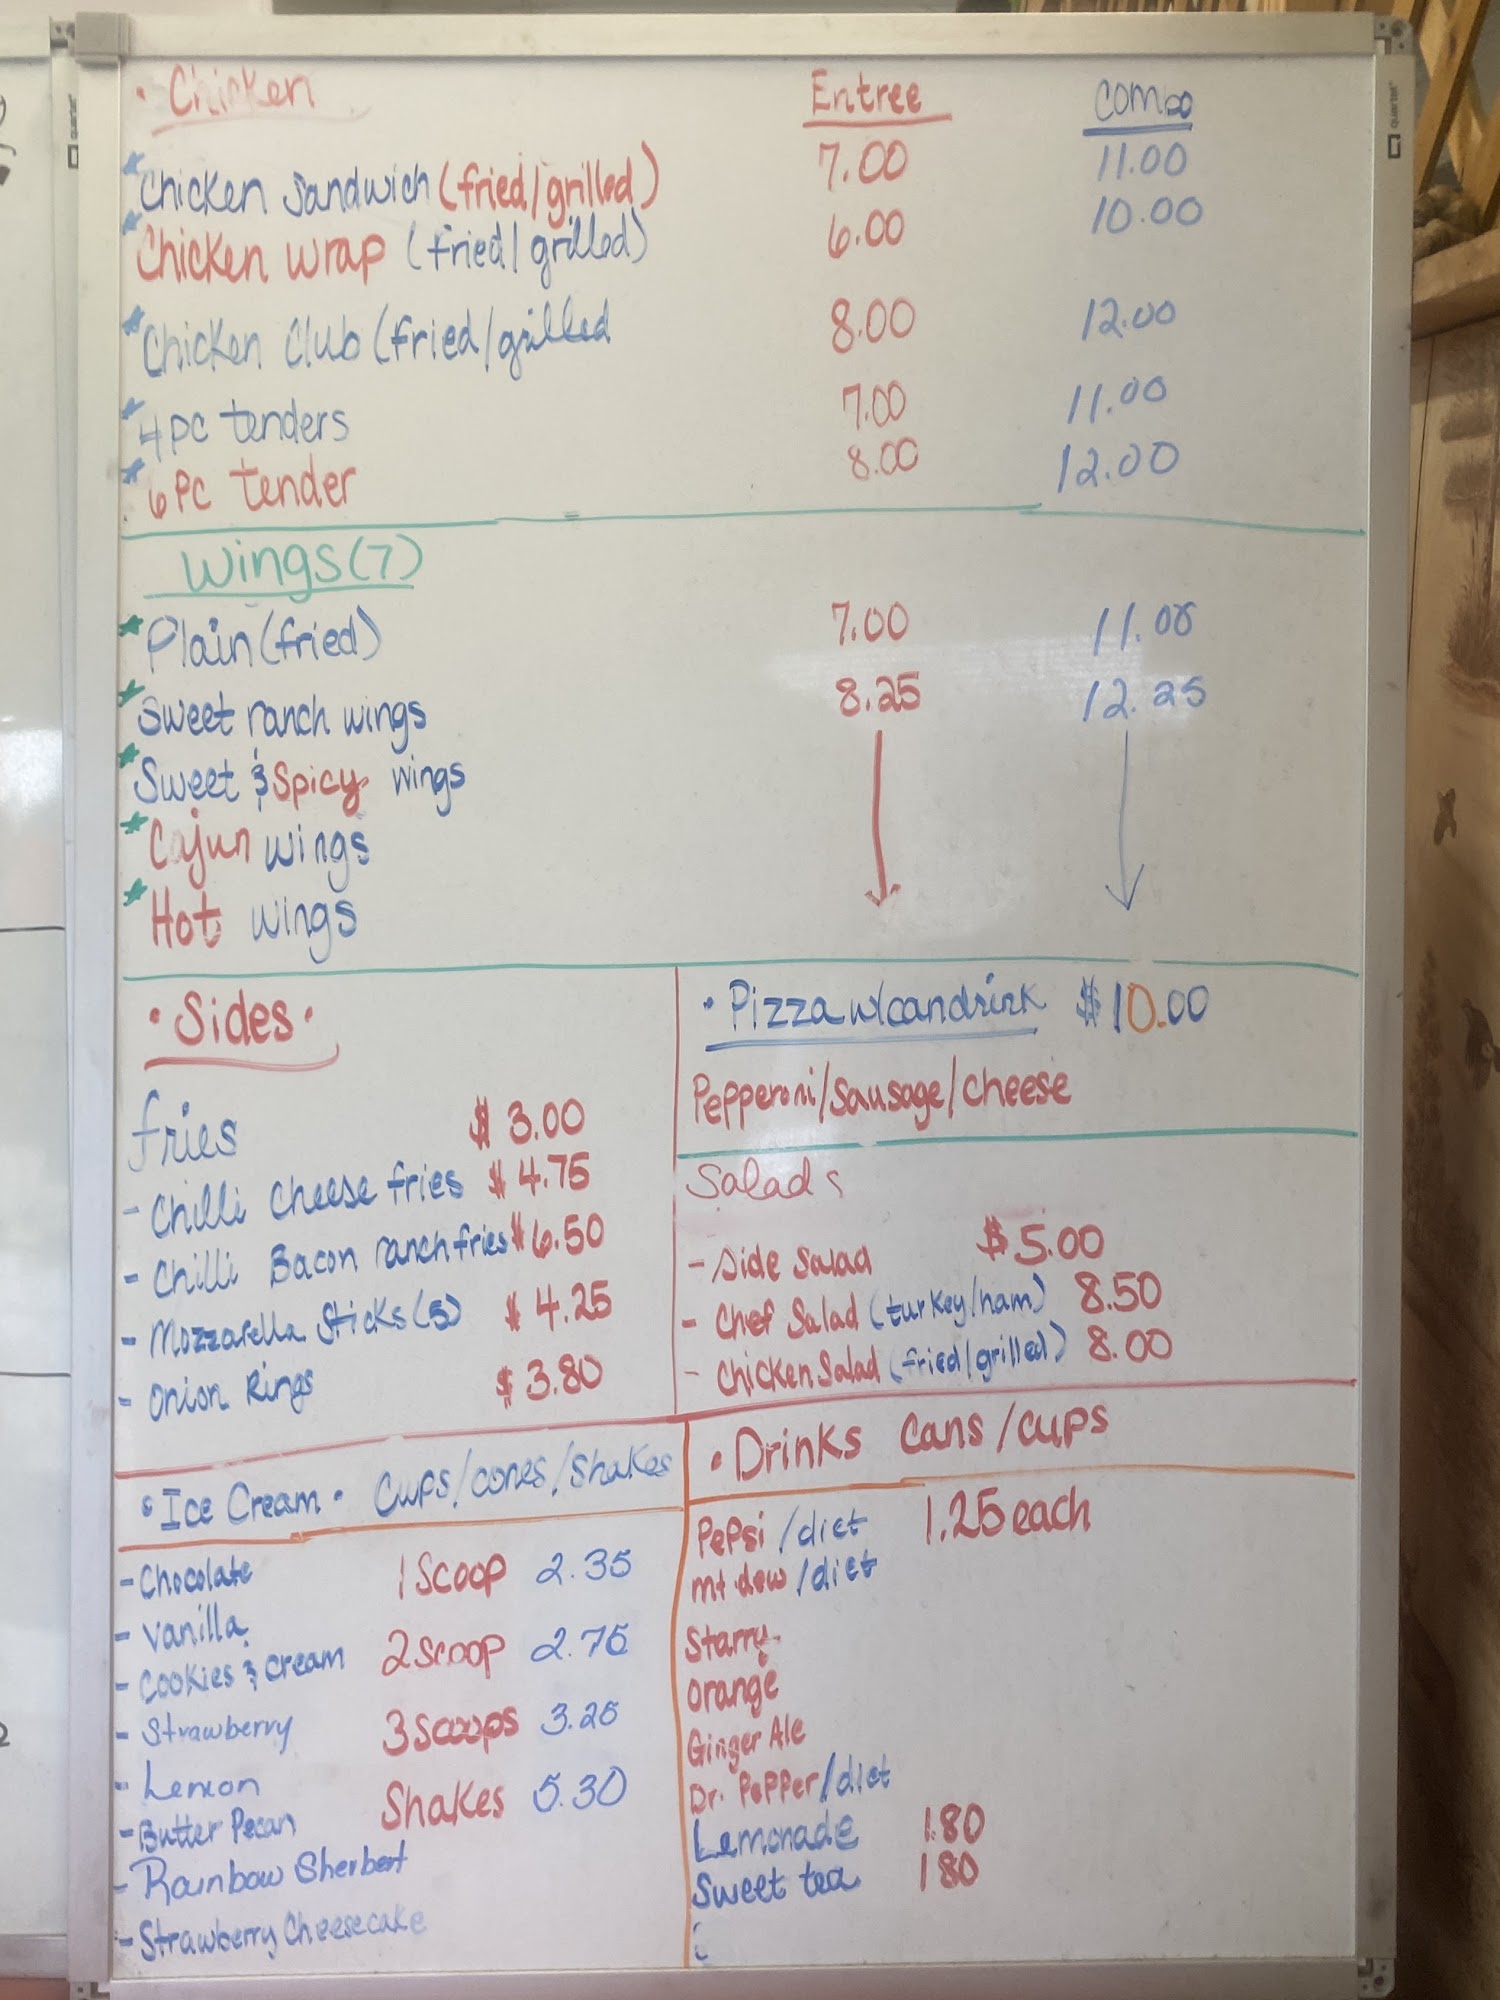 • Chicken Entree Combo
* Chicken Sandwich (fried/grilled) 7.00 11.00
* Chicken wrap (fried/grilled) 6.00 10.00
* Chicken Club (fried/grilled 8.00 12.00
* 4 pc tenders 7.00 11.00
* 6 PC tender 8.00 12.00
Wings (7)
* Plain (fried) 7.00 11.00
* Sweet ranch wings 8.25 12.25
* Sweet & Spicy wings
* Cajun wings
* Hot wings
• Sides •
fries $ 3.00
- Chilli Cheese fries $ 4.75
- Chilli Bacon ranch fries $ 6.50
- Mozzarella Sticks (5) $ 4.25
- Onion Rings $ 3.80
• Pizza w/can drink $10.00
Pepperoni/Sausage/Cheese
Salads
- Side Salad $5.00
- Chef Salad (turkey/ham) 8.50
- Chicken Salad (fried/grilled) 8.00
• Ice Cream • Cups/cones/Shakes
- Chocolate 1 Scoop 2.35
- Vanilla
- Cookies & Cream 2 scoop 2.75
- Strawberry 3 Scoops 3.25
- Lemon
- Butter Pecan Shakes 5.30
- Rainbow Sherbert
- Strawberry Cheesecake
• Drinks Cans/Cups
Pepsi /diet 1.25 each
mt. dew /diet
Starry
Orange
Ginger Ale
Dr. Pepper/diet
Lemonade 1.80
Sweet tea 1 80
quartet
quartet